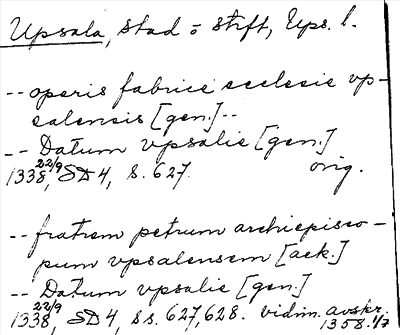 Upsala, stad o stift, Ups. l.
-- operis fabrice ecclesie vp-
salensis [gen.] --
-- Datum vpsalie [gen.]
1338 22/9, SD 4, s. 627. orig.
-- fratrem petrum archiepisco-
pum vpsalensem [ack.]
-- Datum vpsalie [gen.]
1338 22/9, SD 4, ss. 627, 628. vidim. avskr. 1358 1/7